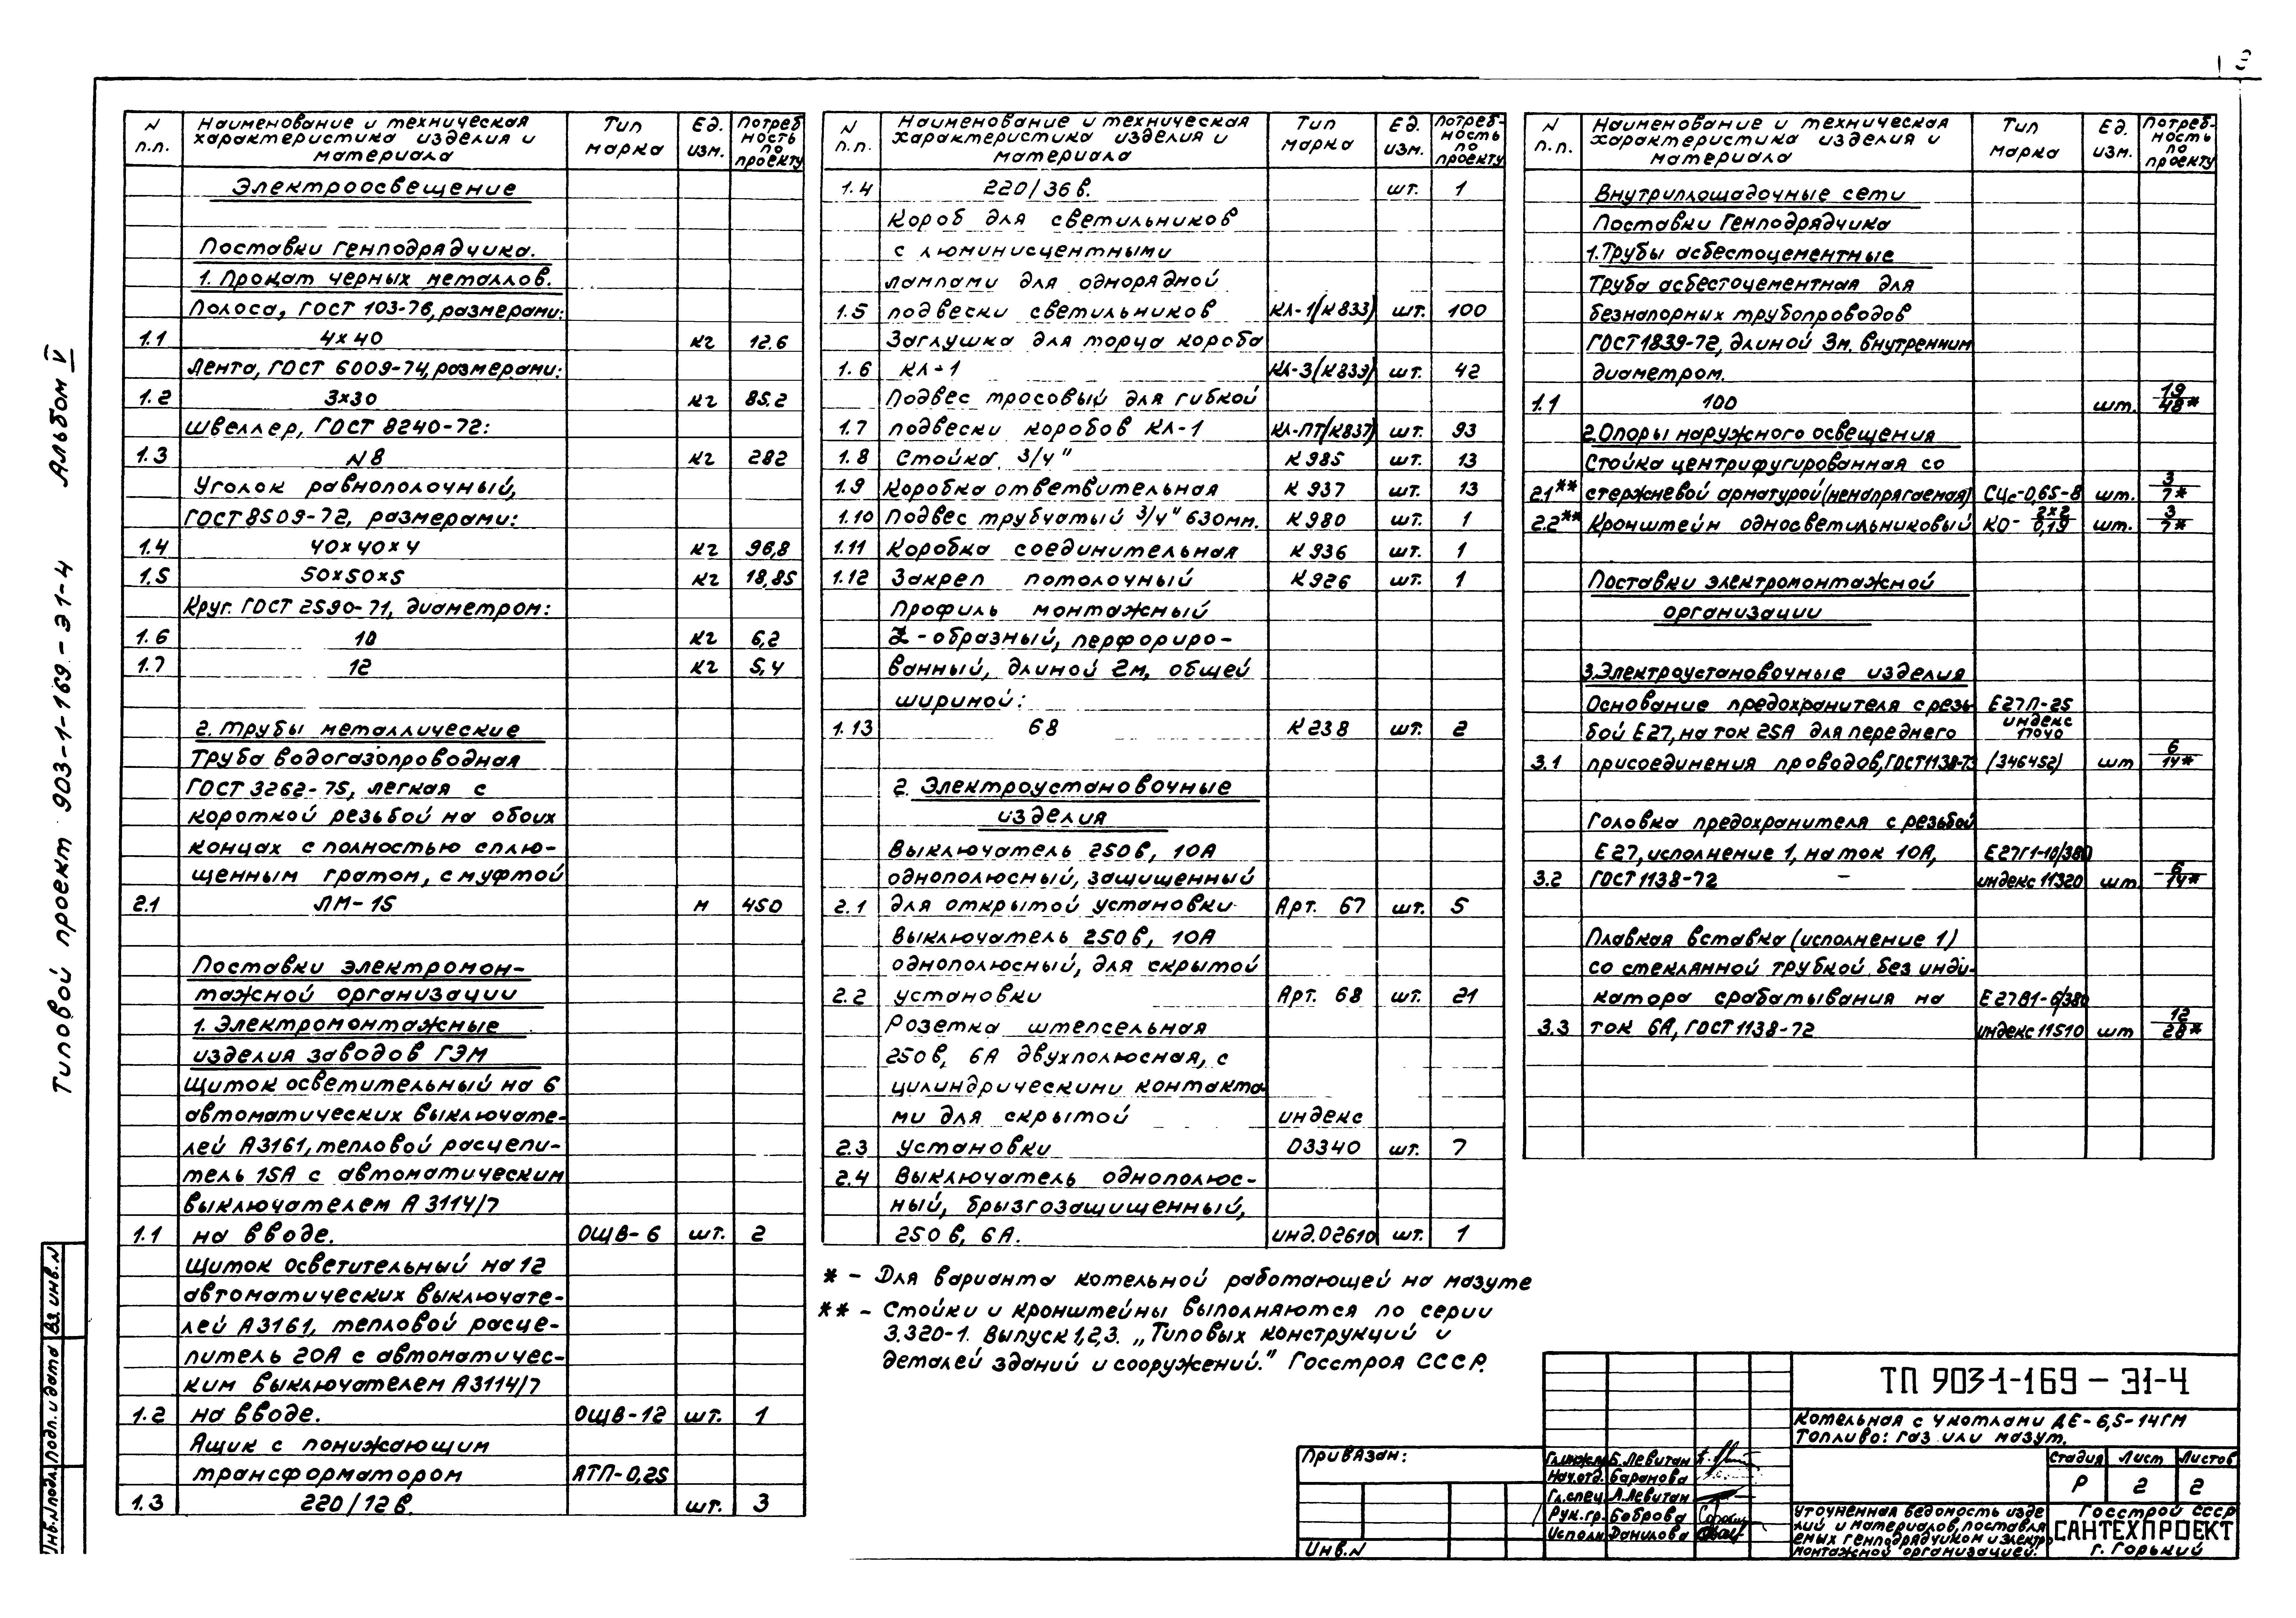 3
Типовой проект 903-1-169-Э1-4 Альбом V
N п.п. Наименование и техническая характеристика изделия и материала Тип марка Ед. изм. Потребность по проекту
Электроосвещение
Поставки Генподрядчика.
1. Прокат черных металлов.
Полоса, ГОСТ 103-76, размерами:
1.1 4х40 кг 12.6
Лента, ГОСТ 6009-74, размерами:
1.2 3х30 кг 85.2
Швеллер, ГОСТ 8240-72:
1.3 N8 кг 282
Уголок равнополочный,
ГОСТ 8509-72, размерами:
1.4 40х40х4 кг 96,8
1.5 50х50х5 кг 18,85
Круг. ГОСТ 2590-71, диаметром:
1.6 10 кг 6,2
1.7 12 кг 5,4
2. Трубы металлические
Труба водогазопроводная
ГОСТ 3262-75, легкая с
короткой резьбой на обоих
концах с полностью сплю-
щенным гратом, с муфтой
2.1 ЛМ-15 м 450
Поставки электромон-
тажной организации
1. Электромонтажные
изделия заводов ГЭМ
Щиток осветительный на 6
автоматических выключате-
лей А3161, тепловой расцепи-
тель 15А с автоматическим
выключателем А3114/7
1.1 на вводе. ОЩВ-6 шт. 2
Щиток осветительный на 12
автоматических выключате-
лей А3161, тепловой расце-
питель 20А с автоматичес-
ким выключателем А3114/7
1.2 на вводе. ОЩВ-12 шт. 1
Ящик с понижающим
трансформатором ЯТП-0,25
1.3 220/12 в. шт. 3
N п.п. Наименование и техническая характеристика изделия и материала Тип марка Ед. изм. Потреб-ность по проекту
1.4 220/36 в. шт. 1
Короб для светильников
с люминисцентными
лампами для однорядной
1.5 подвески светильников КЛ-1(К833) шт. 100
Заглушка для торца короба
1.6 КЛ-1 КЛ-3(К839) шт. 42
Подвес тросовый для гибкой
1.7 подвески коробов КЛ-1 КЛ-ПТ(К837) шт. 93
1.8 Стойка 3/4" К985 шт. 13
1.9 Коробка ответвительная К 937 шт. 13
1.10 Подвес трубчатый 3/4" 630мм. К980 шт. 1
1.11 Коробка соединительная К 936 шт. 1
1.12 Закреп потолочный К926 шт. 1
Профиль монтажный
Z-образный, перфориро-
ванный, длиной 2м, общей
шириной:
1.13 68 К 238 шт. 2
2. Электроустановочные
изделия
Выключатель 250в, 10А
однополюсный, защищенный
2.1 для открытой установки Арт. 67 шт. 5
Выключатель 250в, 10А
однополюсный, для скрытой
2.2 установки Арт. 68 шт. 21
Розетка штепсельная
250в, 6А двухполюсная, с
цилиндрическими контакта-
ми для скрытой индекс
2.3 установки 03340 шт. 7
2.4 Выключатель однополюс-
ный, брызгозащищенный,
250 в, 6А. инд.02610 шт. 1
* - Для варианта котельной работающей на мазуте
** - Стойки и кронштейны выполняются по серии
3.320-1. Выпуск 1,2,3. „Типовых конструкций и
деталей зданий и сооружений." Госстроя СССР.
N п.п. Наименование и техническая характеристика изделия и материала Тип марка Ед. изм. Потреб-ность по проекту
Внутриплощадочные сети
Поставки Генподрядчика
1. Трубы асбестоцементные
Труба асбестоцементная для
безнапорных трубопроводов
ГОСТ 1839-72, длиной 3м. внутренним
диаметром.
1.1 100 шт. 19/48*
2. Опоры наружного освещения
Стойка центрифугированная со
2.1** стержневой арматурой (ненапрягаемая) СЦс-0,65-8 шт. 3/7*
2.2** Кронштейн односветильниковый КО-2х2/0,19 шт. 3/7*
Поставки электромонтажной
организации
3. Электроустановочные изделия
Основание предохранителя с резь- Е27П-25
бой Е27, на ток 25А для переднего индекс 17040
3.1 присоединения проводов, ГОСТ 1138-73 (346452) шт 6/14*
Головка предохранителя с резьбой
Е27, исполнение 1, на ток 10А, Е27Г1-10/380
3.2 ГОСТ 1138-72 индекс 11320 шт 6/14*
Плавкая вставка (исполнение 1)
со стеклянной трубкой без инди-
катора срабатывания на Е27В1-6/380
3.3 ток 6А, ГОСТ 1138-72 индекс 11510 шт 12/28*
Инв.N подл. Подп. и дата Вз. инв. N
Привязан:
Инв. N
Гл.инж. Б.Левитан
Нач.отд. Баранова
Гл.спец. А.Левитан
Рук.гр. Боброва
Исполн. Данилова
ТП 903-1-169-Э1-4
Котельная с 4 котлами ДЕ-6,5-14ГМ
Топливо: газ или мазут.
Стадия Лист Листов
Р 2 2
Уточненная ведомость изде
лий и материалов, поставля
емых генподрядчиком и электро
монтажной организацией.
Госстрой СССР
САНТЕХПРОЕКТ
г. Горький